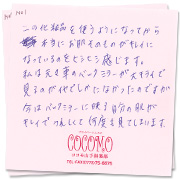 この化粧品を使うようになってから
本当にお肌そのものがキレイに
なっているのをとっても感じます。
私は元々車のバックミラーが大キライで
見るのが化でしかなかったのですが
今はバックミラーに映る自分の肌が
キレイでうれしくて何度も見てしまいます。
COCOMO
ココモ山下耕薬局